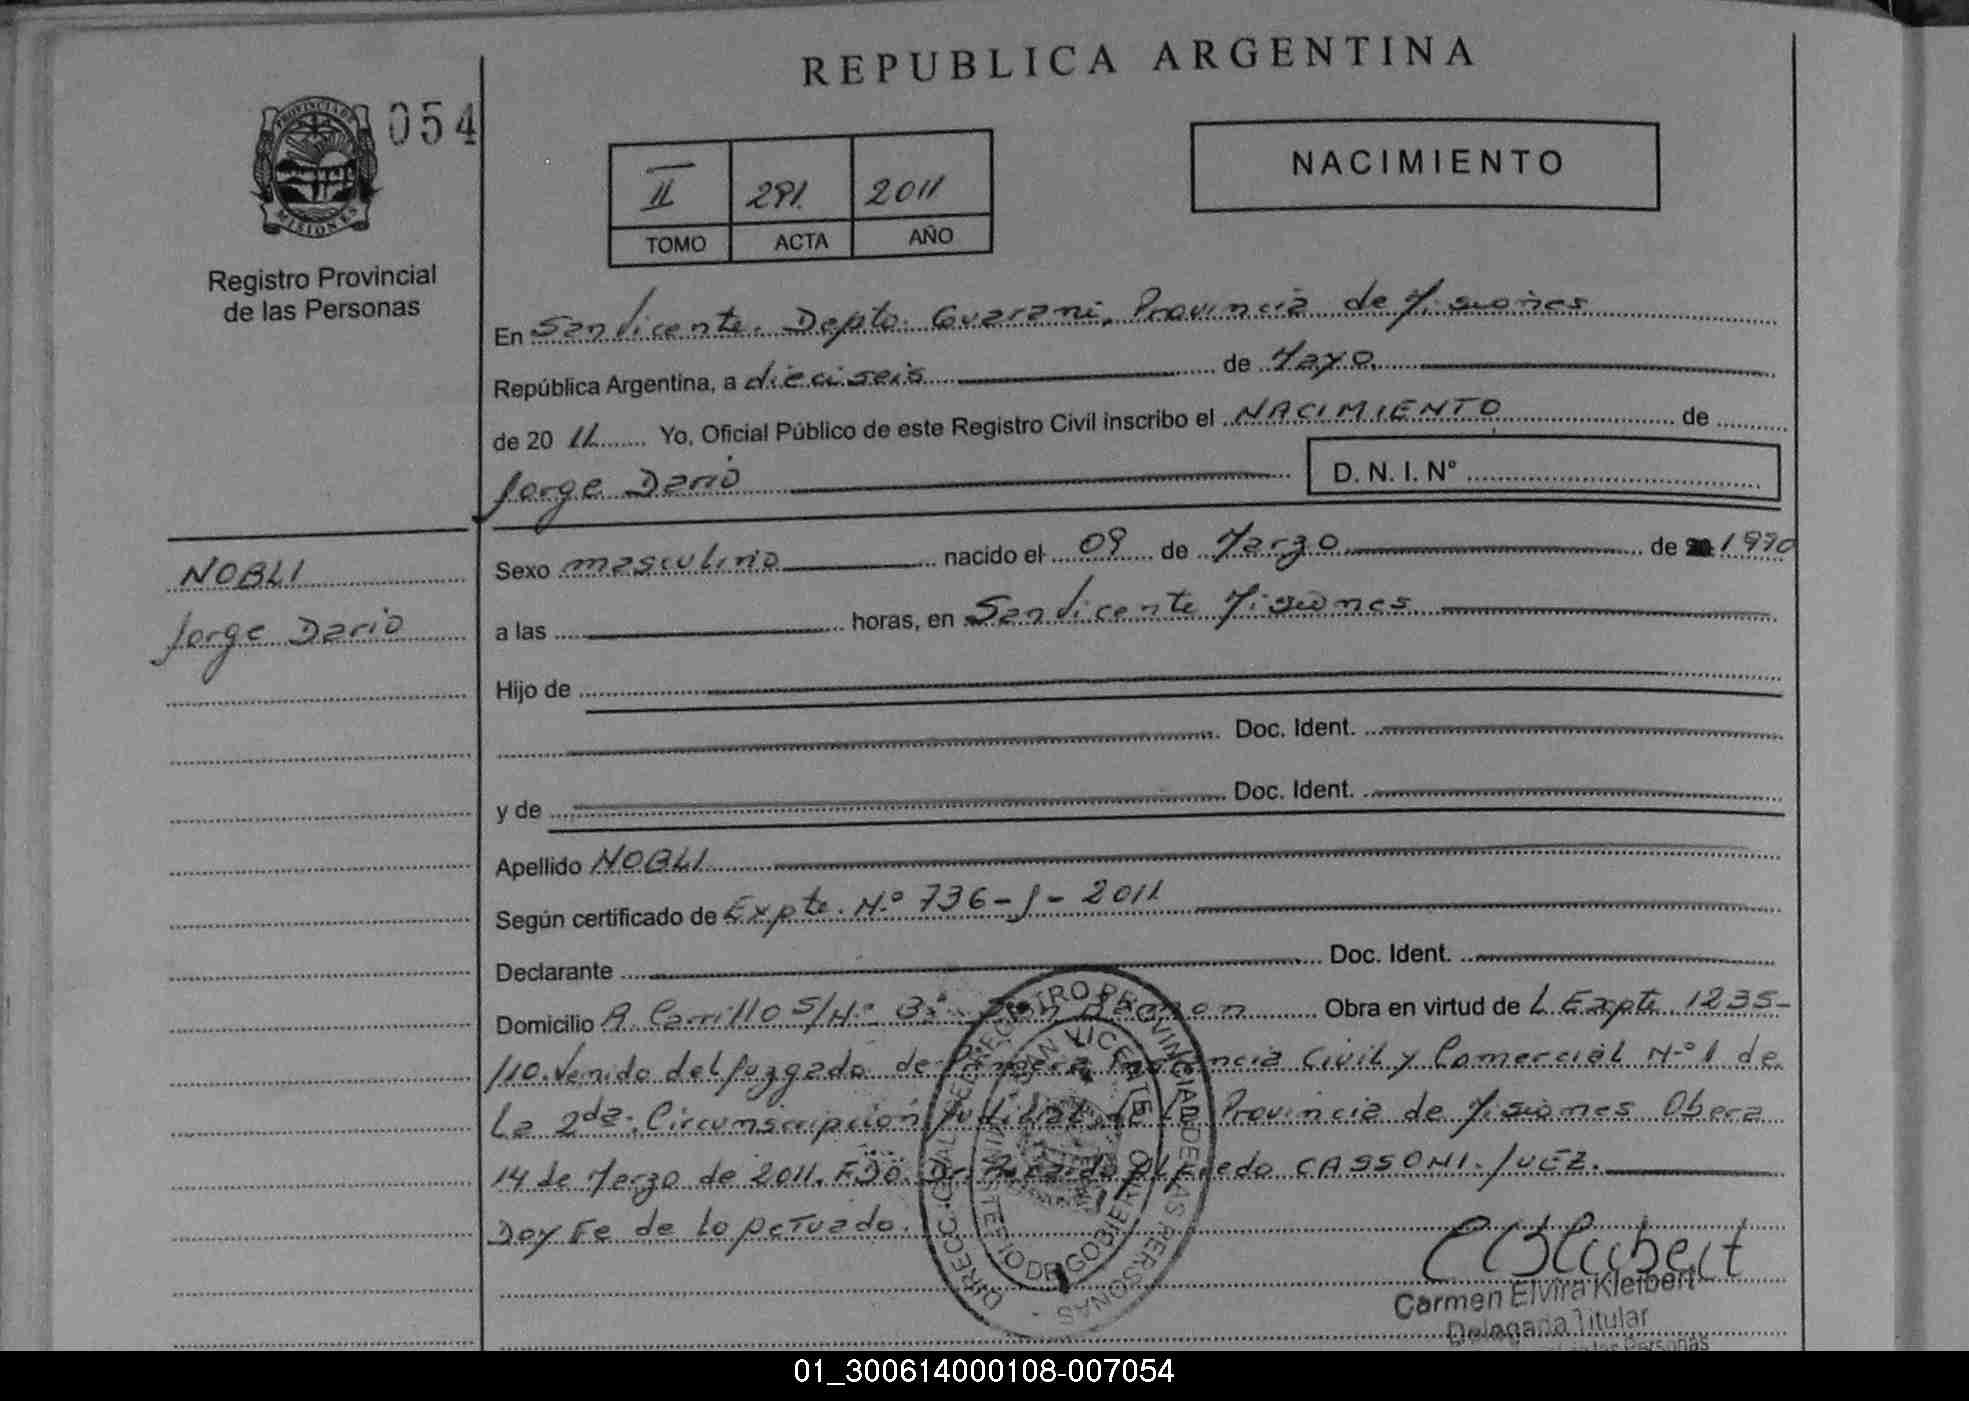 REPUBLICA ARGENTINA
PROVINCIA DE
MISIONES
054
Registro Provincial
de las Personas
II 291 2011
TOMO ACTA AÑO
NACIMIENTO
En San Vicente. Depto. Guarani, Provincia de Misiones
República Argentina, a dieciseis de Mayo
de 2011 Yo, Oficial Público de este Registro Civil inscribo el NACIMIENTO de
Jorge Dario D. N. I. Nº
NOBLI
Jorge Dario
Sexo masculino nacido el 09 de Marzo de 1990
a las horas, en San Vicente Misiones
Hijo de
Doc. Ident.
y de Doc. Ident.
Apellido NOBLI
Según certificado de Expte. N.º 736-J-2011
Declarante Doc. Ident.
Domicilio A. Carrillo S/N.º Bº Obra en virtud de L. Expte 1235-
/10. Venido del Juzgado de Primera Instancia Civil y Comercial N.º 1 de
La 2da. Circunscripción Judicial de la Provincia de Misiones Obera
14 de Marzo de 2011. FDO. Dr. Alfredo CASSONI. JUEZ.
Doy Fe de lo actuado.
DIRECC. GRAL. DEL REGISTRO PROVINCIAL DE LAS PERSONAS
SAN VICENTE
MINISTERIO DE GOBIERNO
Carmen Elvira Kleibert
Delegada Titular
Personas
01_300614000108-007054